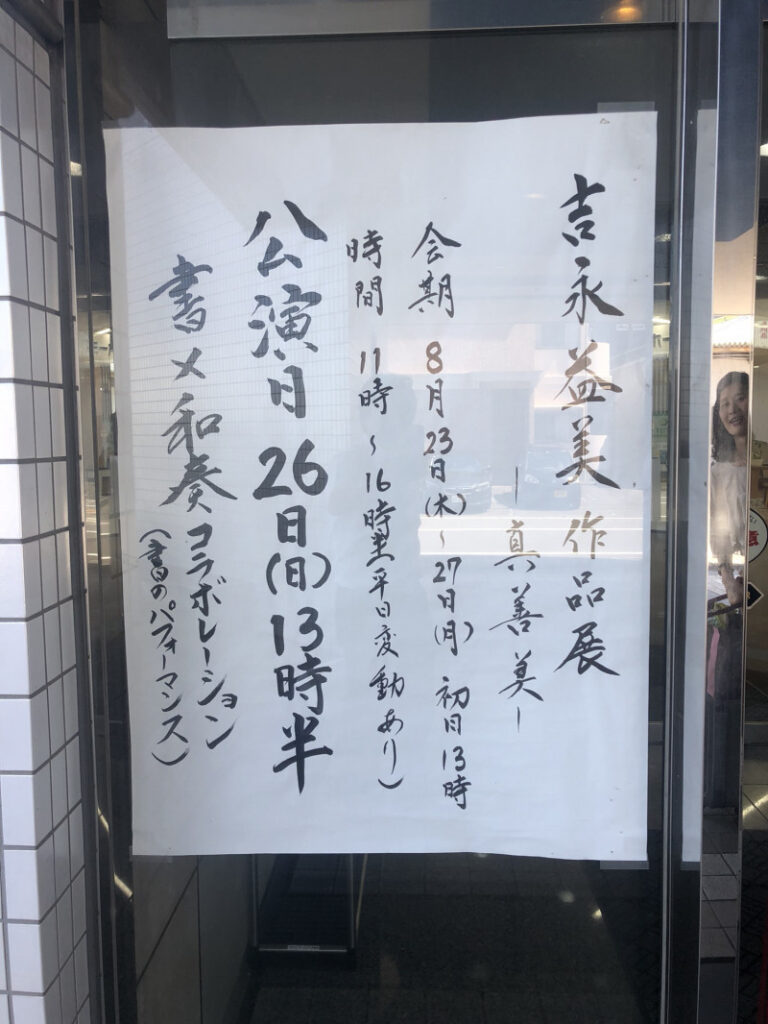 吉永益美作品展
－真善美－
会期 8月23日(木)～27日(月) 初日13時
時間 11時～16時半 平日変動あり)
公演日 26日(日)13時半
書×和奏コラボレーション
(書のパフォーマンス)